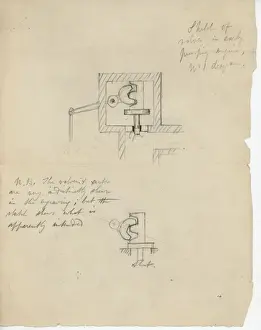 Sketch of
valves in early
pumping engine
W
N.B. The valves
are very indistinctly shown
in the engraving; but the
sketch shows what is
apparently intended
Shut.